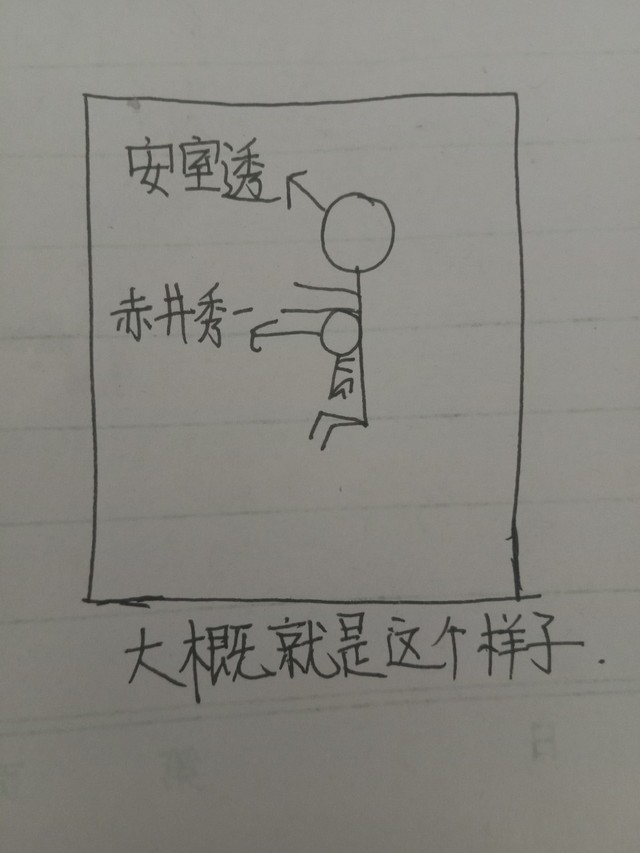 安室透
赤井秀一
大概就是这个样子.